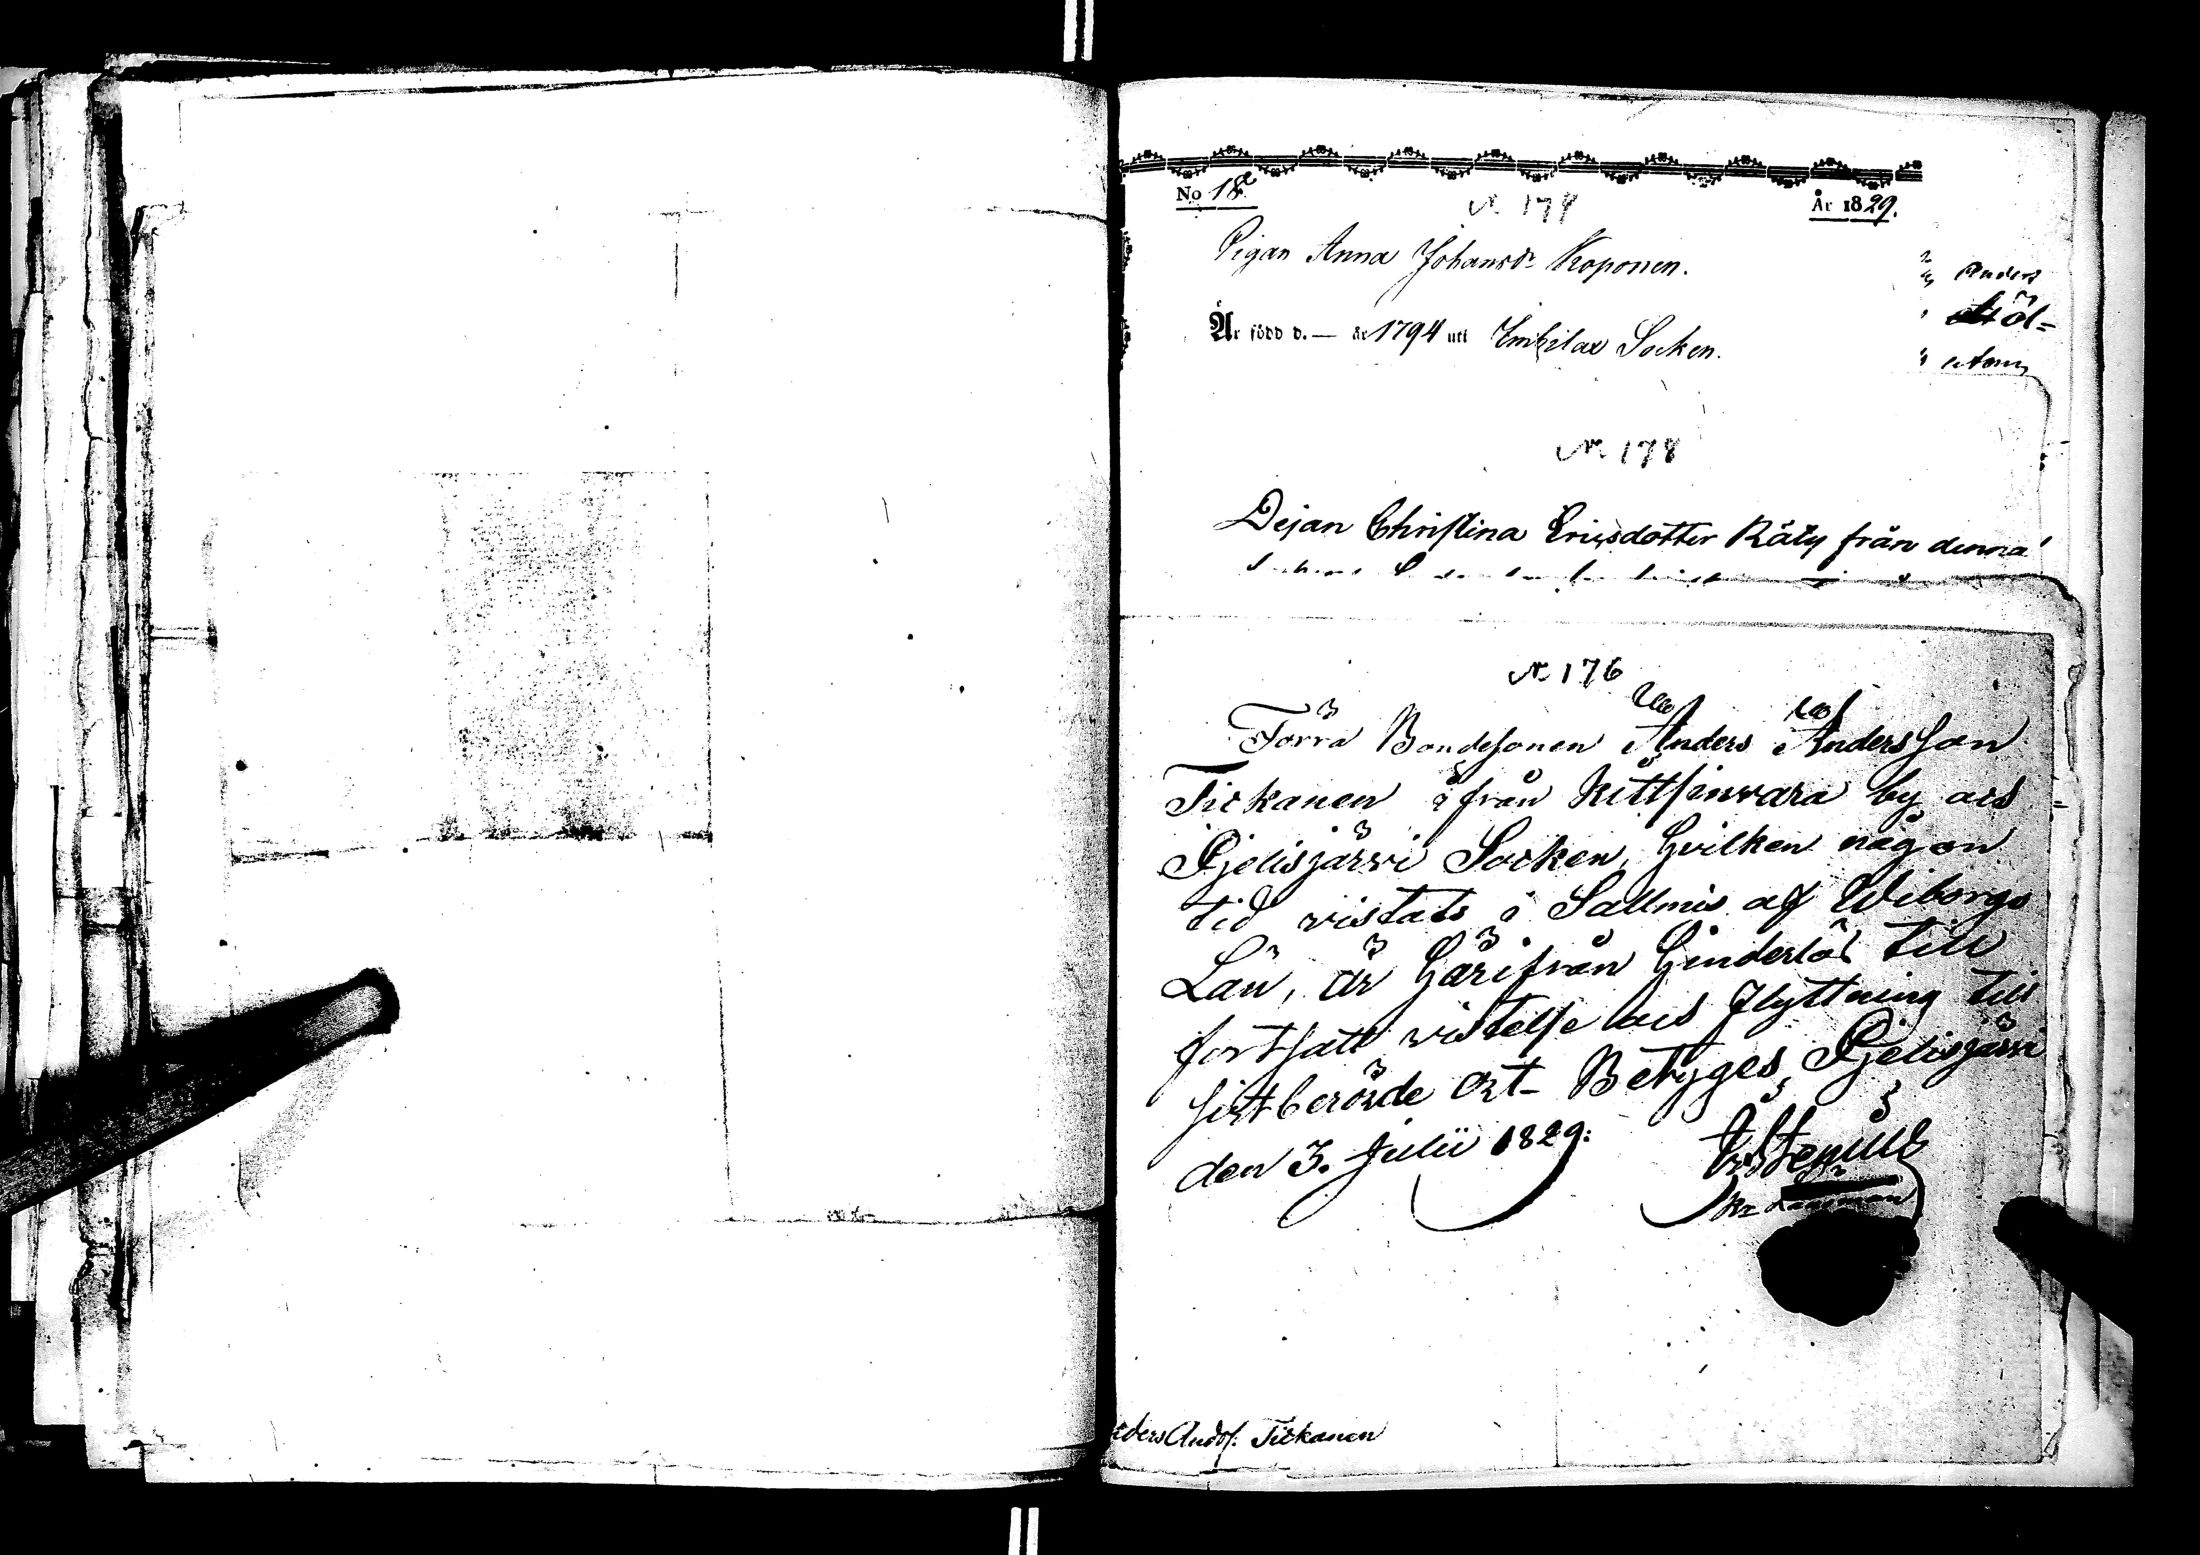 No 18
N. 179
År 1829.
Pigan Anna Johansdr Koponen.
Är född d. — år 1794 uti Imbilax Socken.
Anders
öl=
N. 178
Dejan Christina Ericsdotter Räty från denna
N. 176
Förra Bondesonen Anders Andersson
Tickanen ifrån Kittsinwara by ock
Pjelisjärwi Socken, hvilken någon
tid vistats i Sallmis af Wiborgs
Län, är härifrån hinderlös till
fortsatt vistelse ock flyttning till
sistberörde ort Betyges, Pjelisjärwi
den 3. Julii 1829:
Stenius
ders Andss: Tickanen